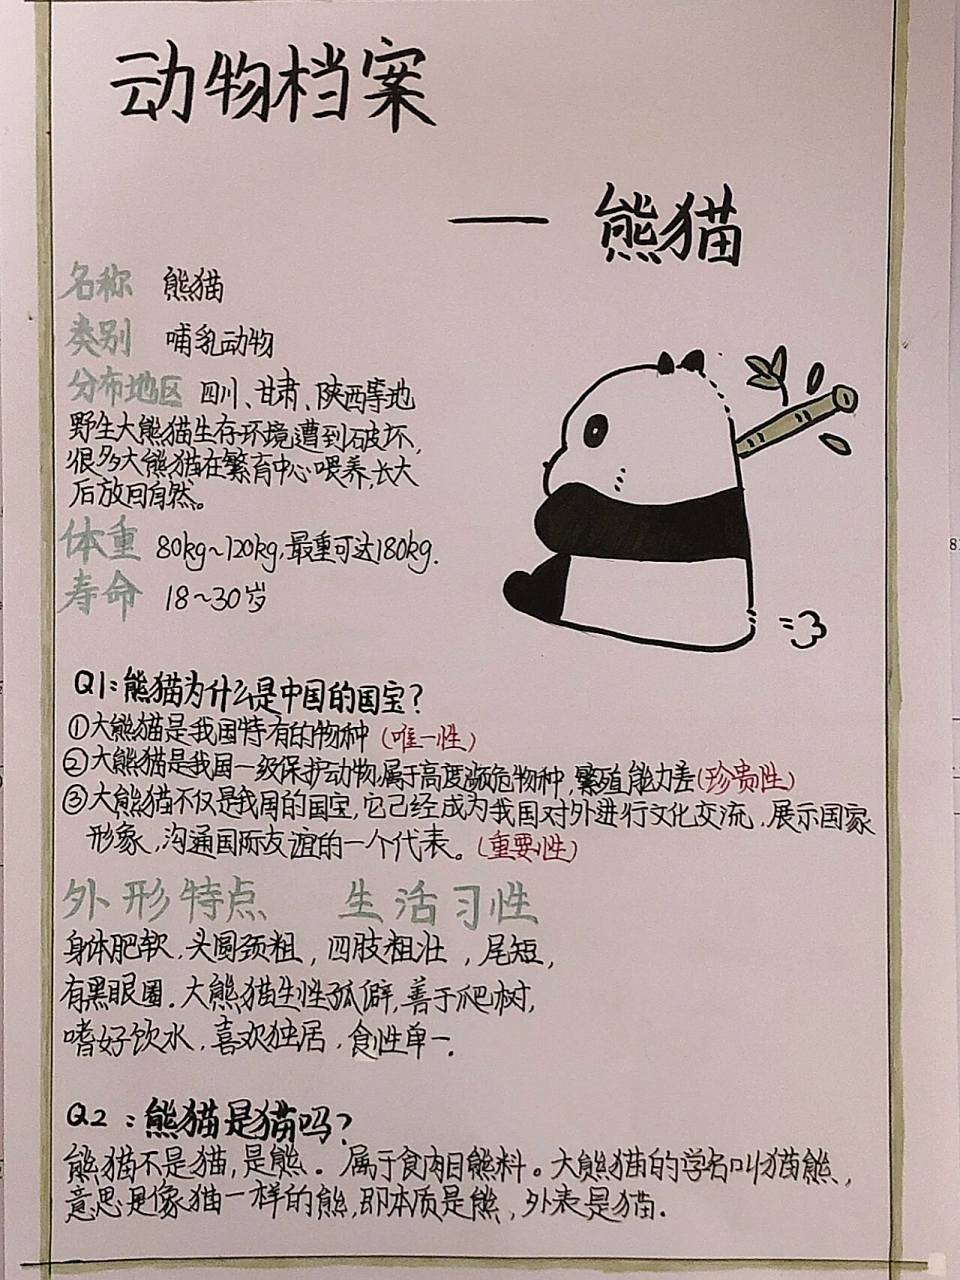 动物档案
—— 熊猫
名称 熊猫
类别 哺乳动物
分布地区 四川、甘肃、陕西等地
野生大熊猫生存环境遭到破坏,
很多大熊猫在繁育中心喂养,长大
后放回自然。
体重 80kg~120kg,最重可达180kg.
寿命 18~30岁
Q1:熊猫为什么是中国的国宝?
①大熊猫是我国特有的物种(唯一性)
②大熊猫是我国一级保护动物,属于高度濒危物种,繁殖能力差(珍贵性)
③大熊猫不仅是我国的国宝,它已经成为我国对外进行文化交流,展示国家
形象,沟通国际友谊的一个代表。(重要性)
外形特点 生活习性
身体肥软,头圆颈粗,四肢粗壮,尾短,
有黑眼圈.大熊猫生性孤僻,善于爬树,
嗜好饮水,喜欢独居,食性单一.
Q2:熊猫是猫吗?
熊猫不是猫,是熊。属于食肉目熊科。大熊猫的学名叫猫熊,
意思是像猫一样的熊,即本质是熊,外表是猫.